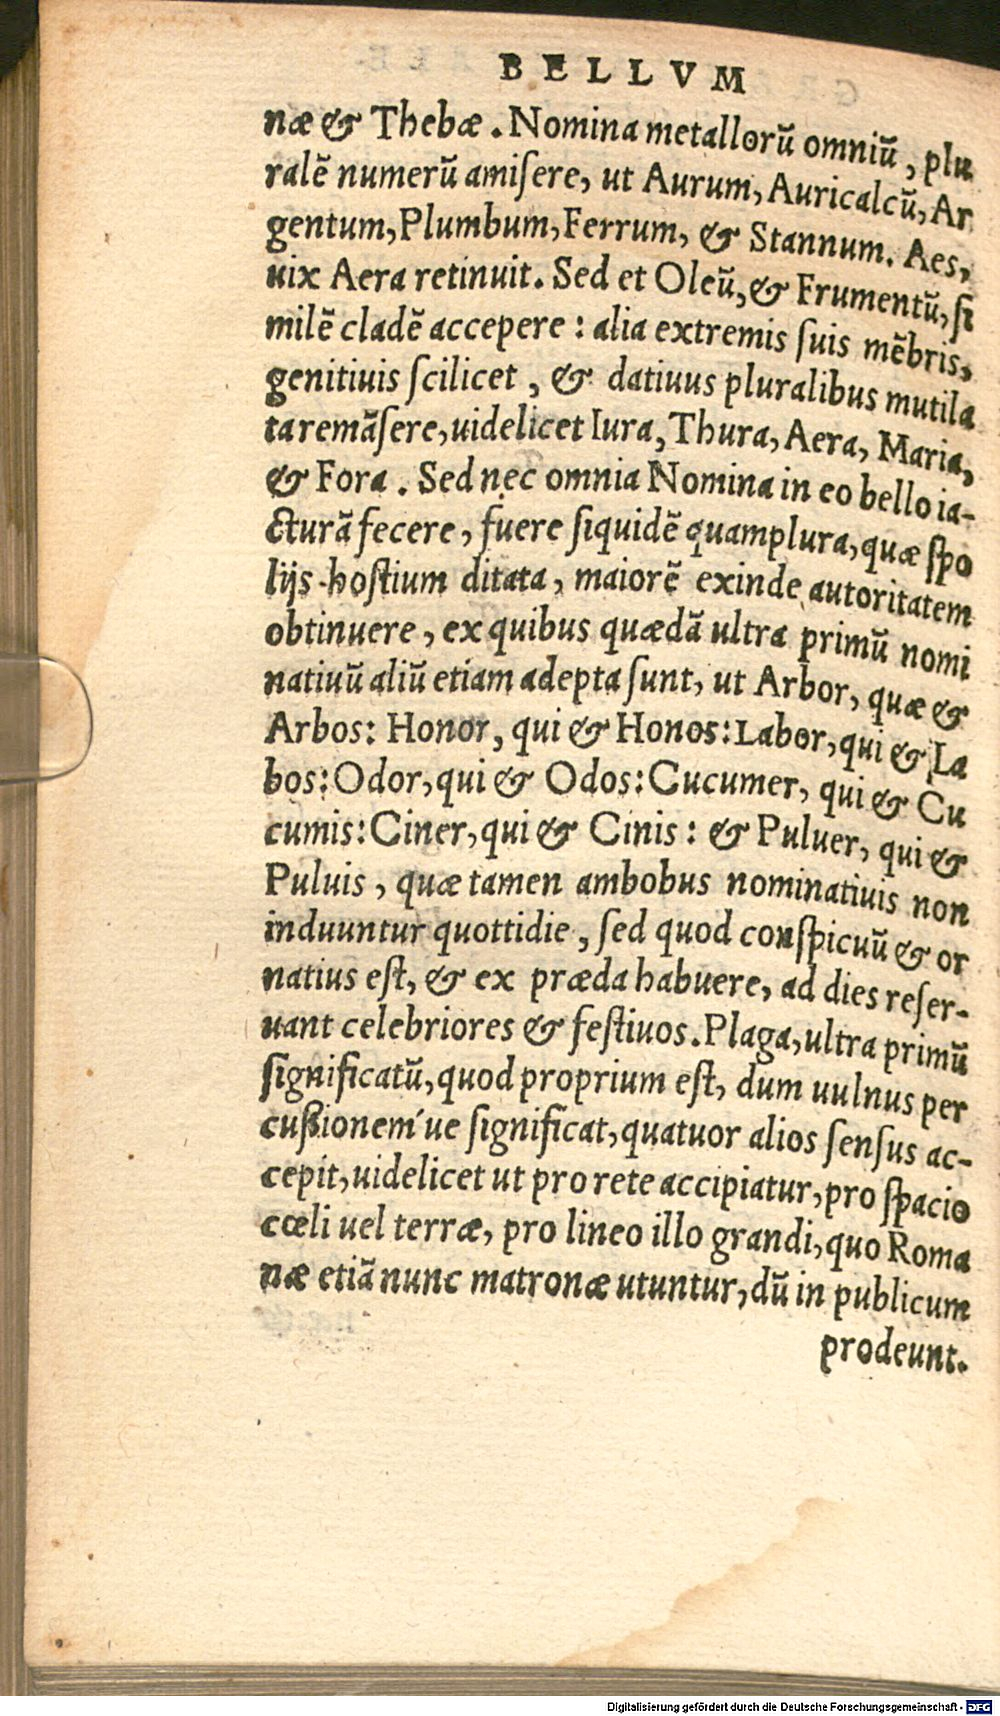 BELLVM
næ & Thebæ. Nomina metallorũ omniũ, plu
ralẽ numerũ amiſere, ut Aurum, Auricalcũ, Ar
gentum, Plumbum, Ferrum, & Stannum. Aes,
uix Aera retinuit. Sed et Oleũ, & Frumentũ, ſi
milẽ cladẽ accepere: alia extremis ſuis mẽbris,
genitiuis ſcilicet, & datiuus pluralibus mutila
ta remãſere, uidelicet Iura, Thura, Aera, Maria,
& Fora. Sed nec omnia Nomina in eo bello ia-
cturã fecere, fuere ſiquidẽ quamplura, quæ ſpo
lijs hoſtium ditata, maiorẽ exinde autoritatem
obtinuere, ex quibus quædã ultra primũ nomi
natiuũ aliũ etiam adepta ſunt, ut Arbor, quæ &
Arbos: Honor, qui & Honos: Labor, qui & La
bos: Odor, qui & Odos: Cucumer, qui & Cu
cumis: Ciner, qui & Cinis: & Puluer, qui &
Puluis, quæ tamen ambobus nominatiuis non
induuntur quottidie, ſed quod conſpicuũ & or
natius eſt, & ex præda habuere, ad dies reſer-
uant celebriores & feſtiuos. Plaga, ultra primũ
ſignificatũ, quod proprium eſt, dum uulnus per
cuſsionem´ue ſignificat, quatuor alios ſenſus ac-
cepit, uidelicet ut pro rete accipiatur, pro ſpacio
cœli uel terræ, pro lineo illo grandi, quo Roma
næ etiã nunc matronæ utuntur, dũ in publicum
prodeunt.
Digitalisierung gefördert durch die Deutsche Forschungsgemeinschaft - DFG